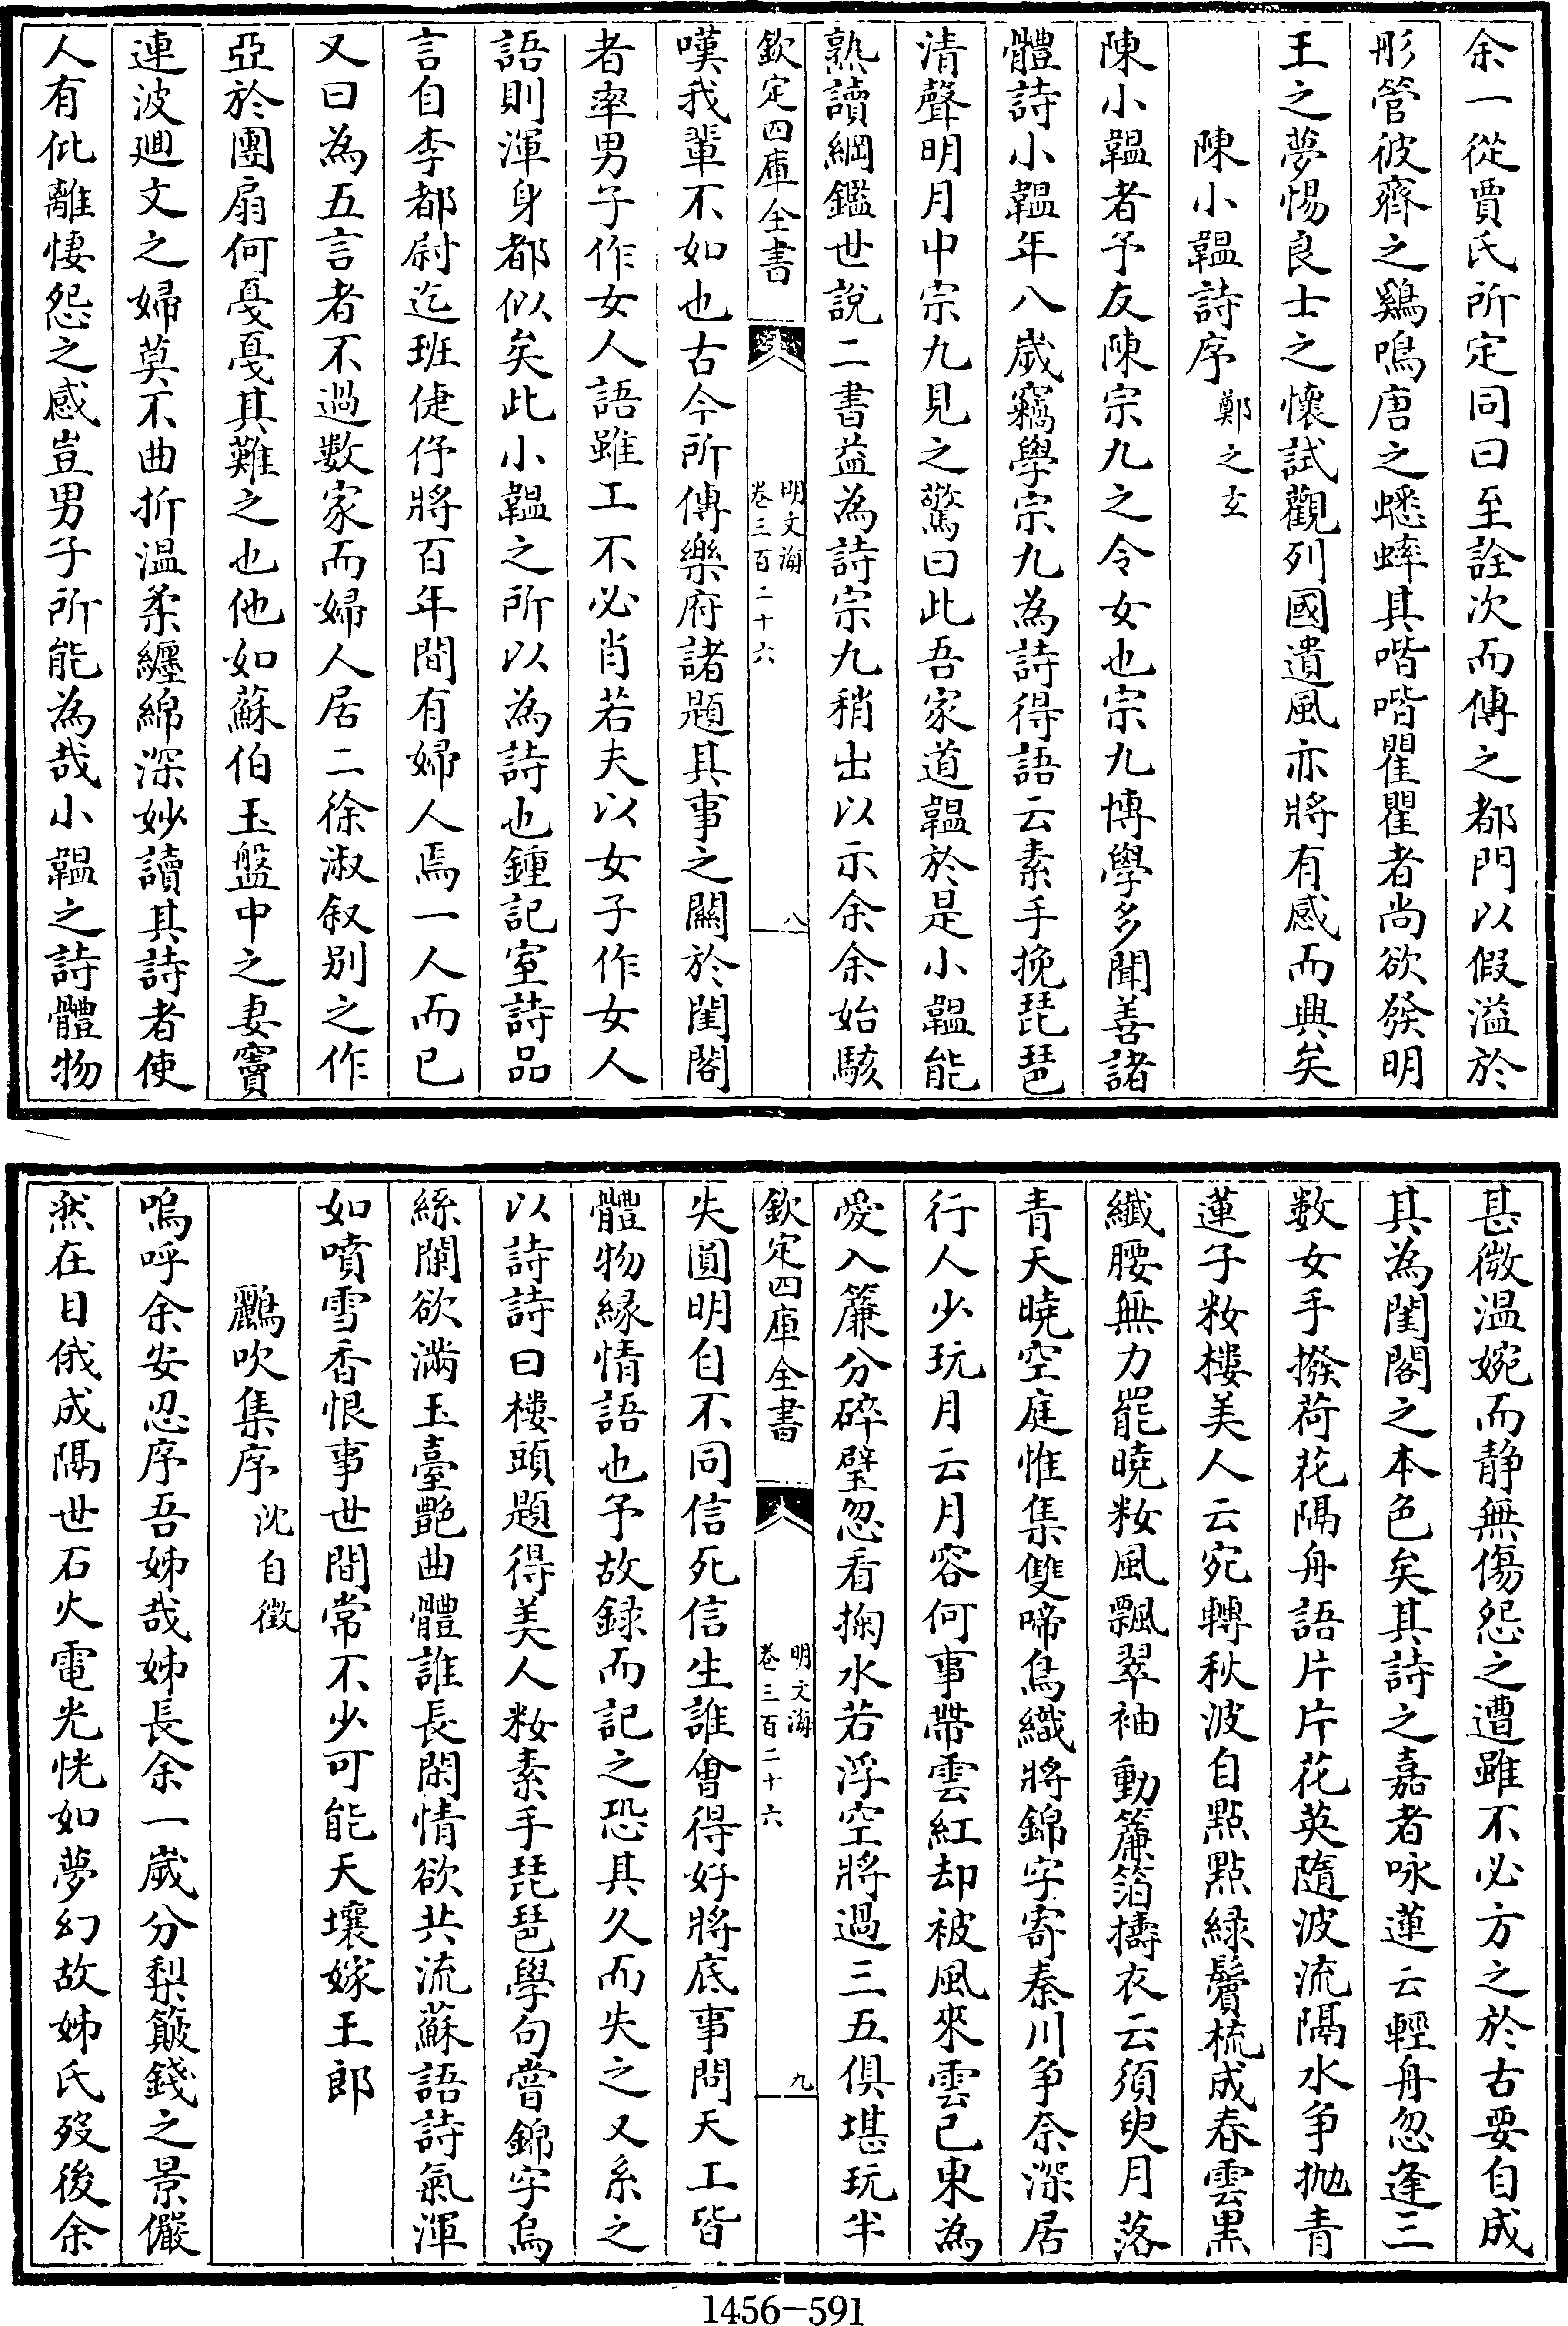 余一從賈氏所定同曰至詮次而傳之都門以假溢於
彤管彼齊之鷄鳴唐之蟋蟀其喈喈瞿瞿者尚欲發明
王之夢惕良士之懷試觀列國遺風亦將有感而興矣
陳小韞詩序 鄭之玄
陳小韞者予友陳宗九之令女也宗九博學多聞善諸
體詩小韞年八歲竊學宗九為詩得語云素手挽琵琶
清聲明月中宗九見之驚曰此吾家道韞於是小韞能
熟讀綱鑑世說二書益為詩宗九稍出以示余余始駭
欽定四庫全書
明文海
卷三百二十六
八
嘆我輩不如也古今所傳樂府諸題其事之關於閨閣
者率男子作女人語雖工不必肖若夫以女子作女人
語則渾身都似矣此小韞之所以為詩也鍾記室詩品
言自李都尉迄班倢伃將百年間有婦人焉一人而已
又曰為五言者不過數家而婦人居二徐淑叙别之作
亞於團扇何戞戞其難之也他如蘇伯玉盤中之妻竇
連波廻文之婦莫不曲折温柔纏綿深妙讀其詩者使
人有仳離悽怨之感豈男子所能為哉小韞之詩體物
甚微温婉而静無傷怨之遭雖不必方之於古要自成
其為閨閣之本色矣其詩之嘉者咏蓮云輕舟忽逢三
數女手撥荷花隔舟語片片花英隨波流隔水争拋青
蓮子粧樓美人云宛轉秋波自點點緑鬢梳成春雲黒
纎腰無力罷曉粧風飄翠袖動簾箔擣衣云須臾月落
青天曉空庭惟集雙啼鳥織將錦字寄秦川争奈深居
行人少玩月云月容何事帶雲紅却被風來雲已東為
愛入簾分碎璧忽看掬水若浮空將過三五俱堪玩半
欽定四庫全書
明文海
卷三百二十六
九
失圓明自不同信死信生誰會得好將底事問天工皆
體物縁情語也予故録而記之恐其久而失之又系之
以詩詩曰樓頭題得美人粧素手琵琶學句嘗錦字烏
絲闌欲滿玉臺艷曲體誰長閑情欲共流蘇語詩氣渾
如噴雪香恨事世間常不少可能天壤嫁王郎
鸝吹集序 沈自徵
嗚呼余安忍序吾姊哉姊長余一歲分梨簸錢之景儼
然在目俄成隔世石火電光恍如夢幻故姊氏歿後余
1456-591